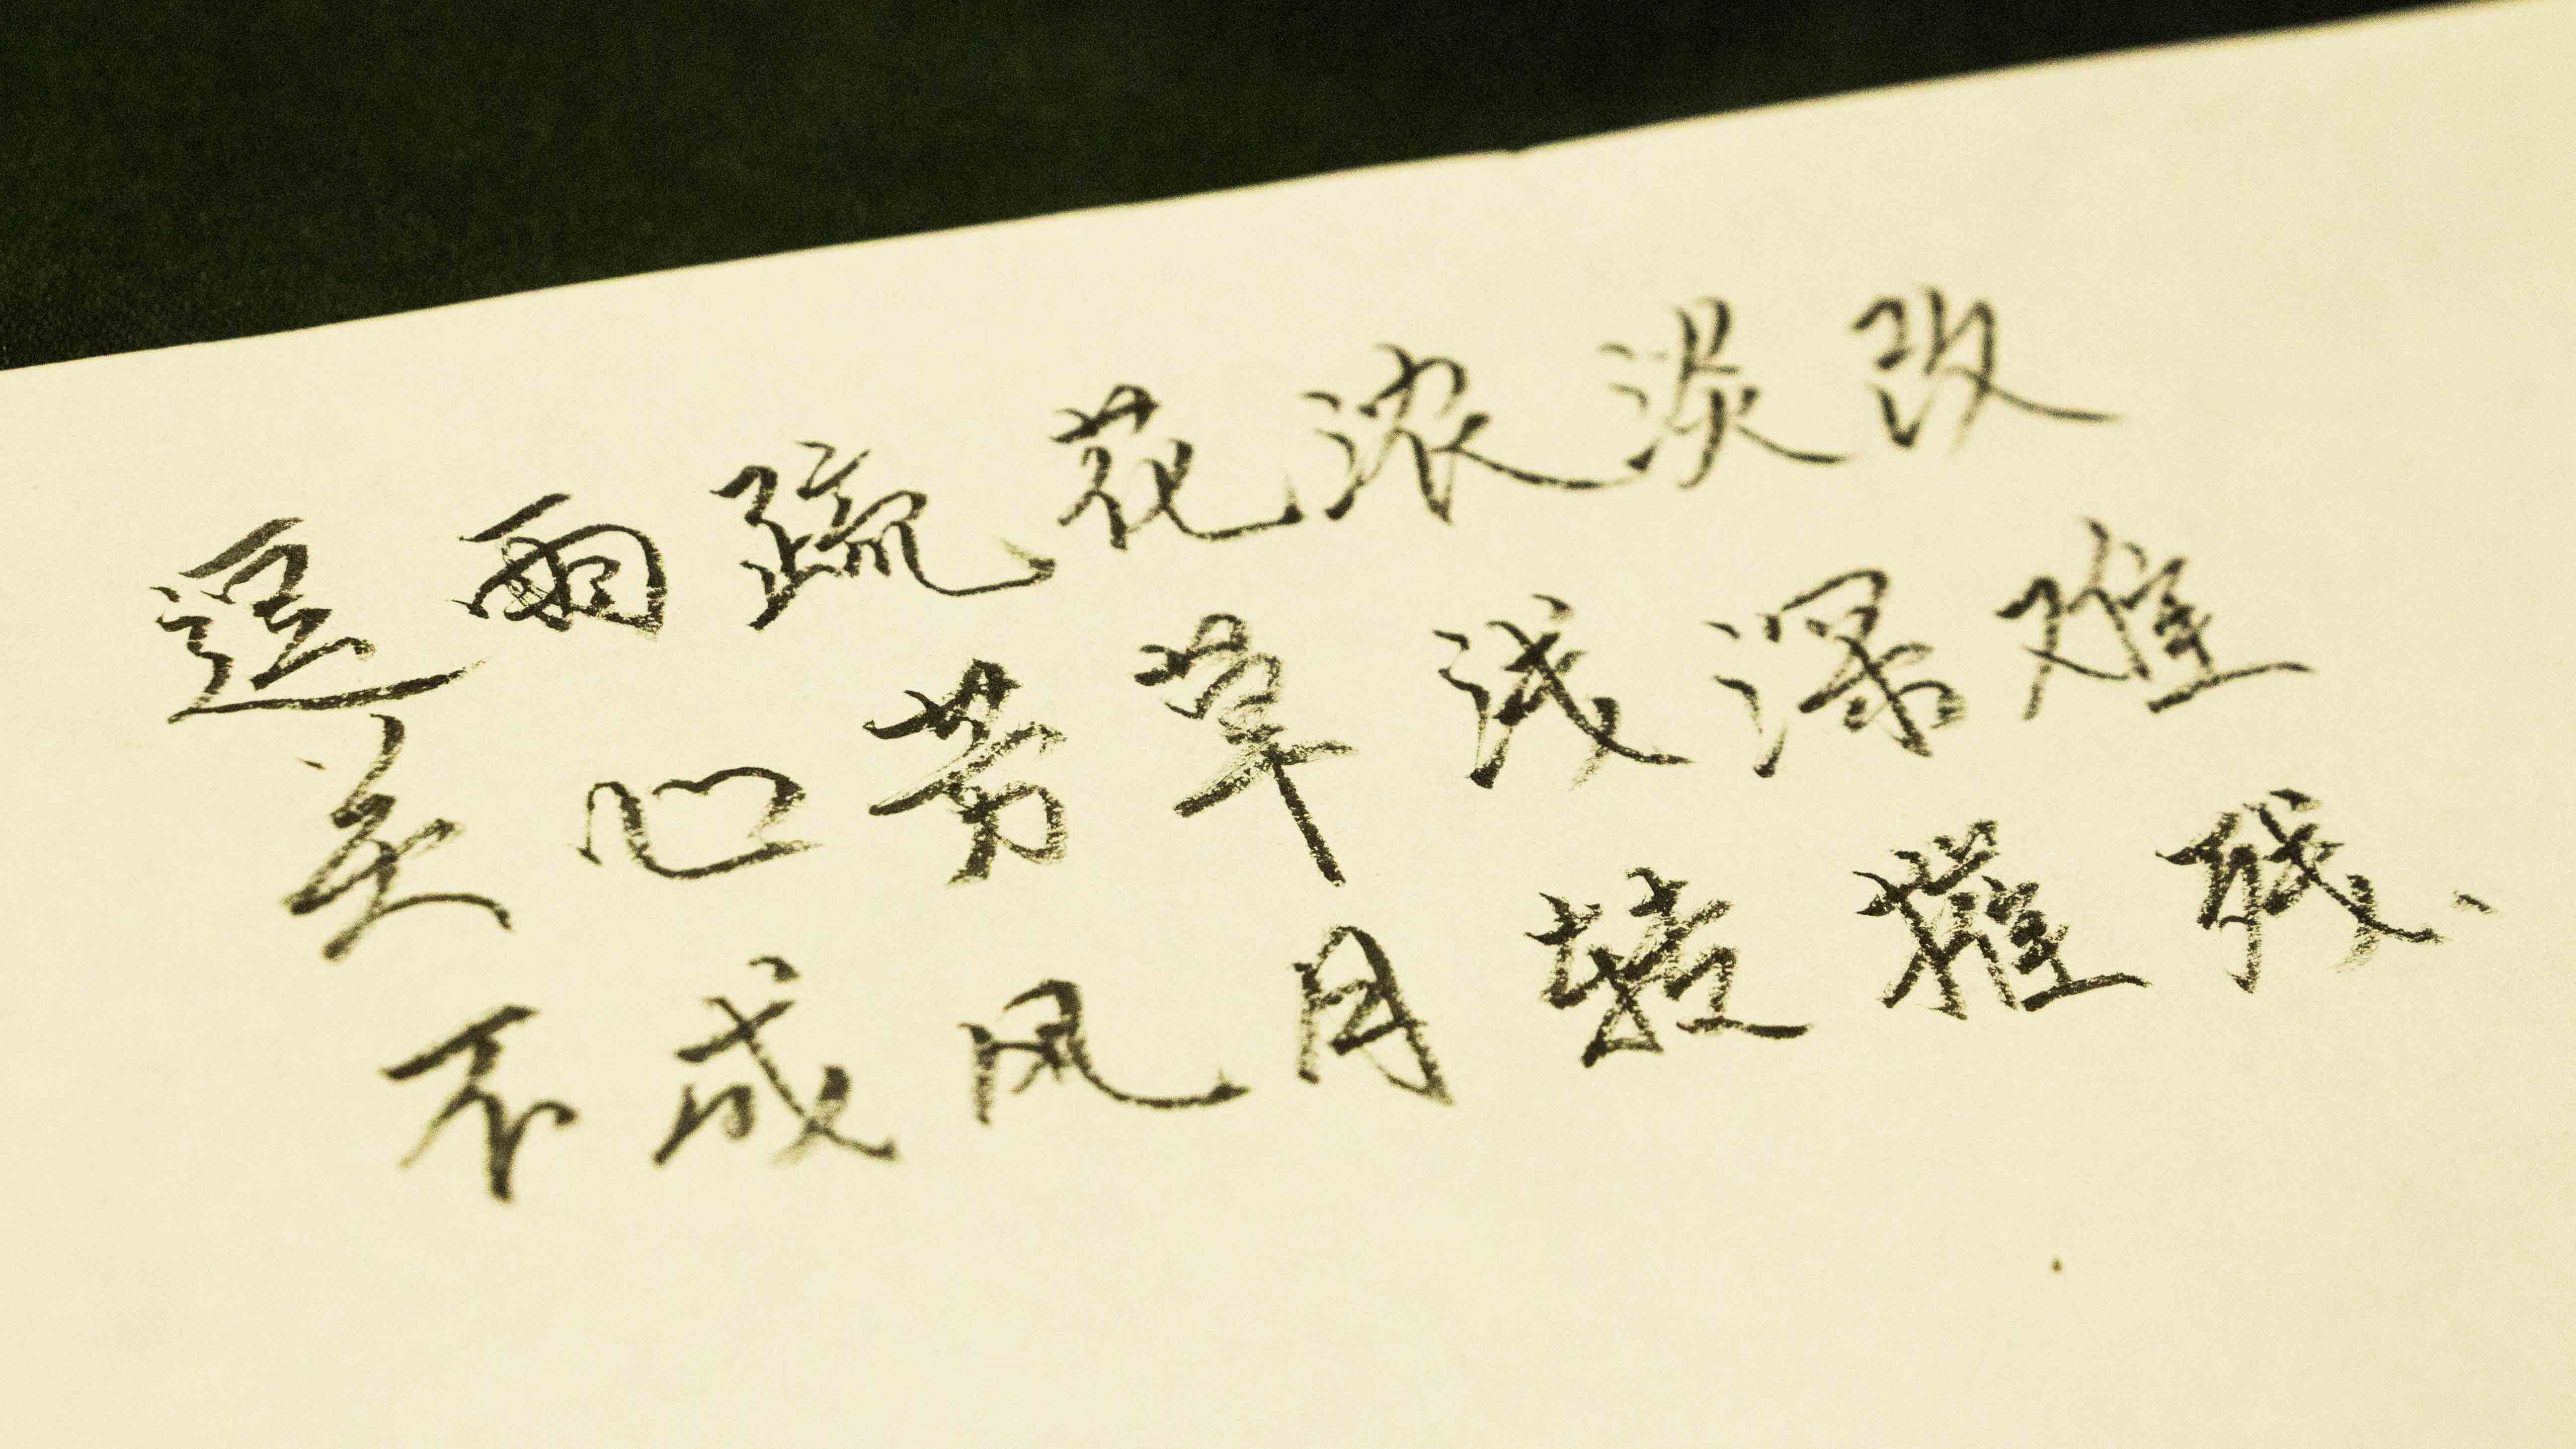 逗雨疏花浓淡改
关心芳草浅深难
不成风月转摧残